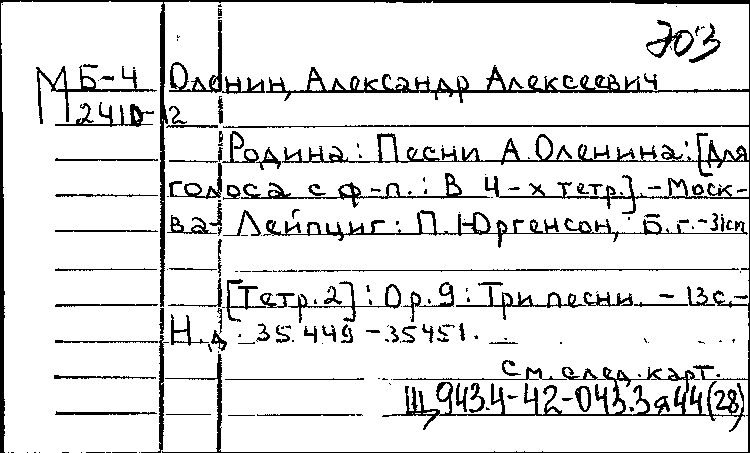 703
М Б-4 Оленин, Александр Алексеевич
2410-12
Родина: Песни А. Оленина: [Для
голоса с ф-п.: В 4-х тетр.]. - Моск-
ва- Лейпциг: П. Юргенсон, Б. г. -
[Тетр. 2]: Op. 9: Три песни. - 13 с. -
Н.д. 35.449 - 35451.
см. след. карт.
Щ943.4-42-043.3я44(28)